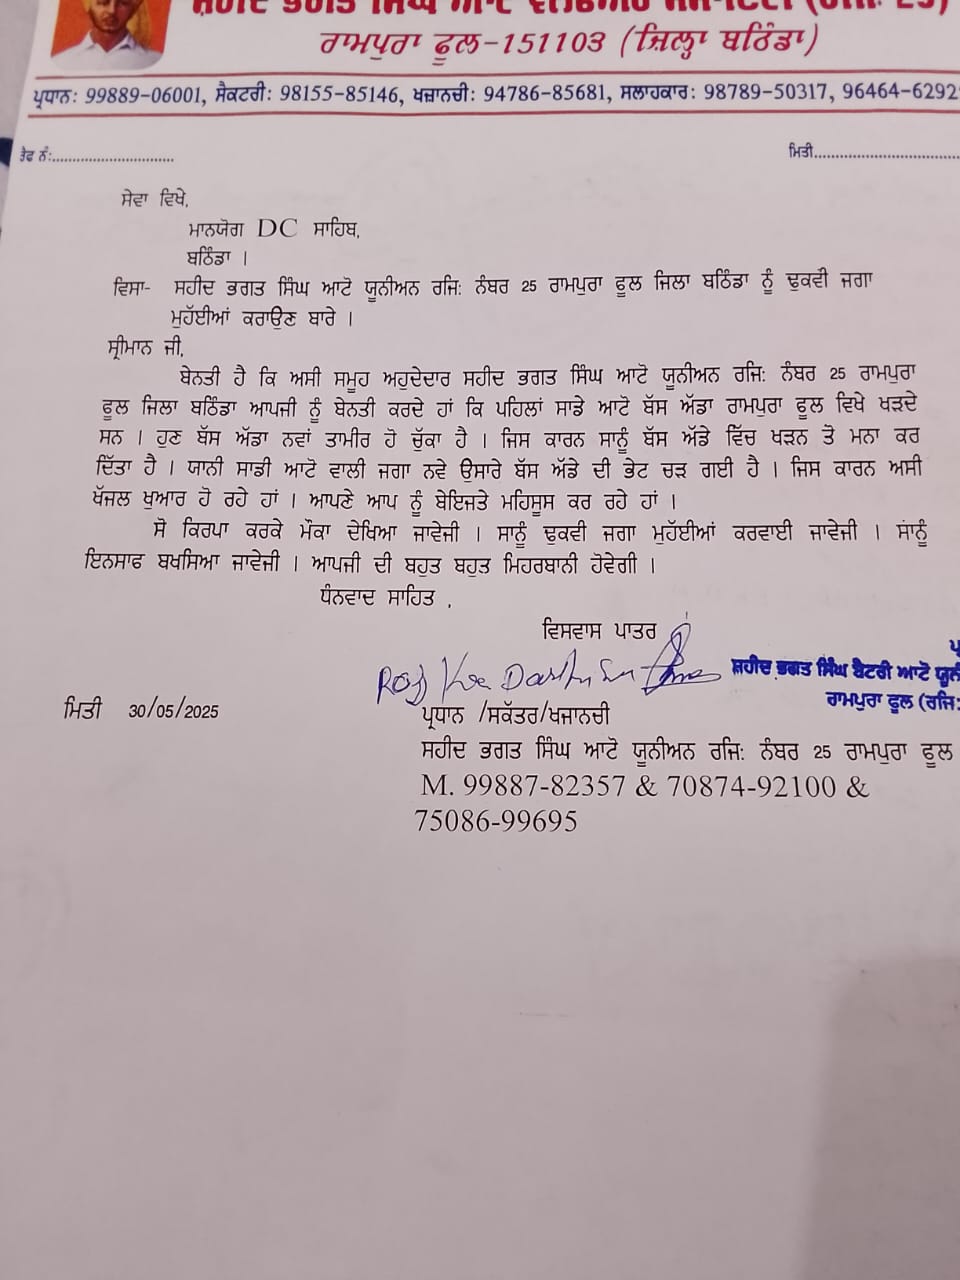 ਸ਼ਹੀਦ ਭਗਤ ਸਿੰਘ ਆਟੋ ਵੈਲਫੇਅਰ
ਰਾਮਪੁਰਾ ਫੂਲ-151103 (ਜ਼ਿਲ੍ਹਾ ਬਠਿੰਡਾ)
ਪ੍ਰਧਾਨ: 99889-06001, ਸੈਕਟਰੀ: 98155-85146, ਖਜ਼ਾਨਚੀ: 94786-85681, ਸਲਾਹਕਾਰ: 98789-50317, 96464-6292
ਰੈਫ ਨੰ:..............................
ਮਿਤੀ....................................
ਸੇਵਾ ਵਿਖੇ,
ਮਾਨਯੋਗ DC ਸਾਹਿਬ,
ਬਠਿੰਡਾ ।
ਵਿਸਾ- ਸਹੀਦ ਭਗਤ ਸਿੰਘ ਆਟੋ ਯੂਨੀਅਨ ਰਜਿ: ਨੰਬਰ 25 ਰਾਮਪੁਰਾ ਫੂਲ ਜਿਲਾ ਬਠਿੰਡਾ ਨੂੰ ਢੁਕਵੀ ਜਗਾ
ਮੁਹੱਈਆਂ ਕਰਾਉਣ ਬਾਰੇ ।
ਸ੍ਰੀਮਾਨ ਜੀ,
ਬੇਨਤੀ ਹੈ ਕਿ ਅਸੀ ਸਮੂਹ ਅਹੁਦੇਦਾਰ ਸਹੀਦ ਭਗਤ ਸਿੰਘ ਆਟੋ ਯੂਨੀਅਨ ਰਜਿ: ਨੰਬਰ 25 ਰਾਮਪੁਰਾ
ਫੂਲ ਜਿਲਾ ਬਠਿੰਡਾ ਆਪਜੀ ਨੂੰ ਬੇਨਤੀ ਕਰਦੇ ਹਾਂ ਕਿ ਪਹਿਲਾਂ ਸਾਡੇ ਆਟੋ ਬੱਸ ਅੱਡਾ ਰਾਮਪੁਰਾ ਫੂਲ ਵਿਖੇ ਖੜਦੇ
ਸਨ । ਹੁਣ ਬੱਸ ਅੱਡਾ ਨਵਾਂ ਤਾਮੀਰ ਹੋ ਚੁੱਕਾ ਹੈ । ਜਿਸ ਕਾਰਨ ਸਾਨੂੰ ਬੱਸ ਅੱਡੇ ਵਿੱਚ ਖੜਨ ਤੋ ਮਨਾ ਕਰ
ਦਿੱਤਾ ਹੈ । ਯਾਨੀ ਸਾਡੀ ਆਟੋ ਵਾਲੀ ਜਗਾ ਨਵੇ ਉਸਾਰੇ ਬੱਸ ਅੱਡੇ ਦੀ ਭੇਟ ਚੜ ਗਈ ਹੈ । ਜਿਸ ਕਾਰਨ ਅਸੀ
ਖੱਜਲ ਖੁਆਰ ਹੋ ਰਹੇ ਹਾਂ । ਆਪਣੇ ਆਪ ਨੂੰ ਬੇਇਜਤੇ ਮਹਿਸੂਸ ਕਰ ਰਹੇ ਹਾਂ ।
ਸੋ ਕਿਰਪਾ ਕਰਕੇ ਮੌਕਾ ਦੇਖਿਆ ਜਾਵੇਜੀ । ਸਾਨੂੰ ਢੁਕਵੀ ਜਗਾ ਮੁਹੱਈਆਂ ਕਰਵਾਈ ਜਾਵੇਜੀ । ਸਾਨੂੰ
ਇਨਸਾਫ ਬਖਸਿਆ ਜਾਵੇਜੀ । ਆਪਜੀ ਦੀ ਬਹੁਤ ਬਹੁਤ ਮਿਹਰਬਾਨੀ ਹੋਵੇਗੀ ।
ਧੰਨਵਾਦ ਸਾਹਿਤ ,
ਵਿਸਵਾਸ ਪਾਤਰ
ਸ਼ਹੀਦ ਭਗਤ ਸਿੰਘ ਬੈਟਰੀ ਆਟੋ
ਰਾਮਪੁਰਾ ਫੂਲ (ਰਜਿ:
ਮਿਤੀ 30/05/2025
ਪ੍ਰਧਾਨ /ਸਕੱਤਰ/ਖਜਾਨਚੀ
ਸਹੀਦ ਭਗਤ ਸਿੰਘ ਆਟੋ ਯੂਨੀਅਨ ਰਜਿ: ਨੰਬਰ 25 ਰਾਮਪੁਰਾ ਫੂਲ
M. 99887-82357 & 70874-92100 &
75086-99695